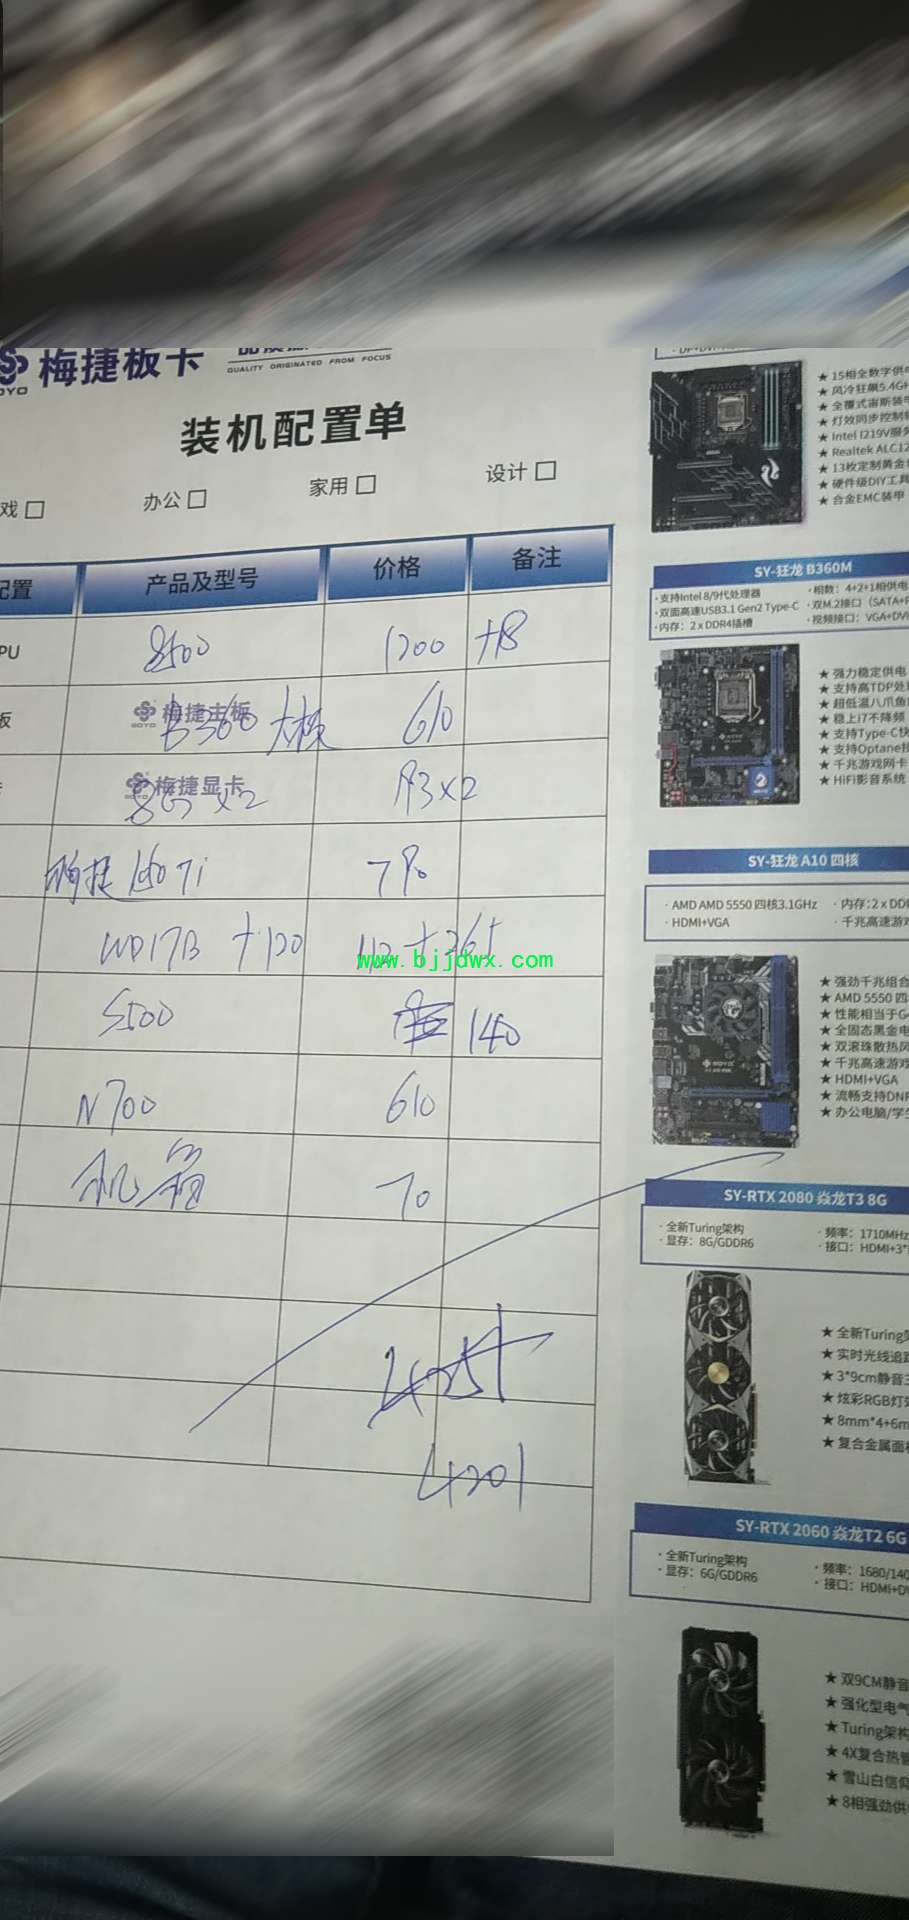 梅捷板卡
QUALITY ORIGINATED FROM FOCUS
装机配置单
戏□ 办公□ 家用□ 设计□
配置 产品及型号 价格 备注
PU 8500 1200 +18
板 梅捷主板 B360 大板 610
梅捷显卡 8G×2 ×2
1050Ti
WD1TB +120
www.bjjdwx.com
S500 140
N700 610
机箱 70
4201
★15相全数字供电
★风冷狂飙5.4GH
★全覆式宙斯装甲
★灯效同步控制
★Intel I219V服务
★Realtek ALC12
★13枚定制黄金
★硬件级DIY工具
★合金EMC装甲
SY-狂龙 B360M
·支持Intel 8/9代处理器 ·相数：4+2+1相供电
·双面高速USB3.1 Gen2 Type-C ·双M.2接口（SATA+P
·内存：2 x DDR4插槽 ·视频接口：VGA+DVI
★强力稳定供电
★支持高TDP处
★超低温八爪鱼
★稳上i7不降频
★支持Type-C快
★支持Optane技
★千兆游戏网卡
★HiFi影音系统
SY-狂龙 A10 四核
·AMD AMD 5550 四核3.1GHz ·内存：2 x DD
·HDMI+VGA ·千兆高速游戏
★强劲千兆组合
★AMD 5550 四
★性能相当于G4
★全固态黑金电
★双滚珠散热风
★千兆高速游戏
★HDMI+VGA
★流畅支持DNF
★办公电脑/学生
SY-RTX 2080 焱龙T3 8G
·全新Turing架构 ·频率：1710MHz
·显存：8G/GDDR6 ·接口：HDMI+3*
★全新Turing架
★实时光线追踪
★3*9cm静音三
★炫彩RGB灯效
★8mm*4+6m
★复合金属面板
SY-RTX 2060 焱龙T2 6G
·全新Turing架构 ·频率：1680/140
·显存：6G/GDDR6 ·接口：HDMI+DV
★双9CM静音
★强化型电气
★Turing架构
★4X复合热管
★雪山白信仰
★8相强劲供